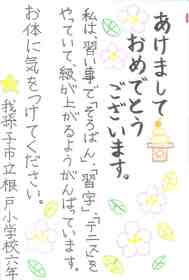 あけまして
おめでとう
ございます。
私は、習い事で「そろばん」「習字」、「テニス」を
やっていて、級が上がるようがんばっています。
お体に気をつけてください。
我孫子市立根戸小学校六年